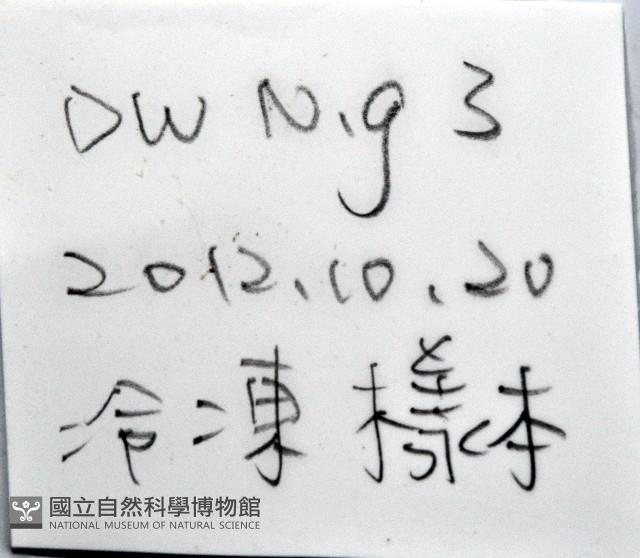 DW Nig 3
2012.10.20
冷凍樣本
國立自然科學博物館
NATIONAL MUSEUM OF NATURAL SCIENCE